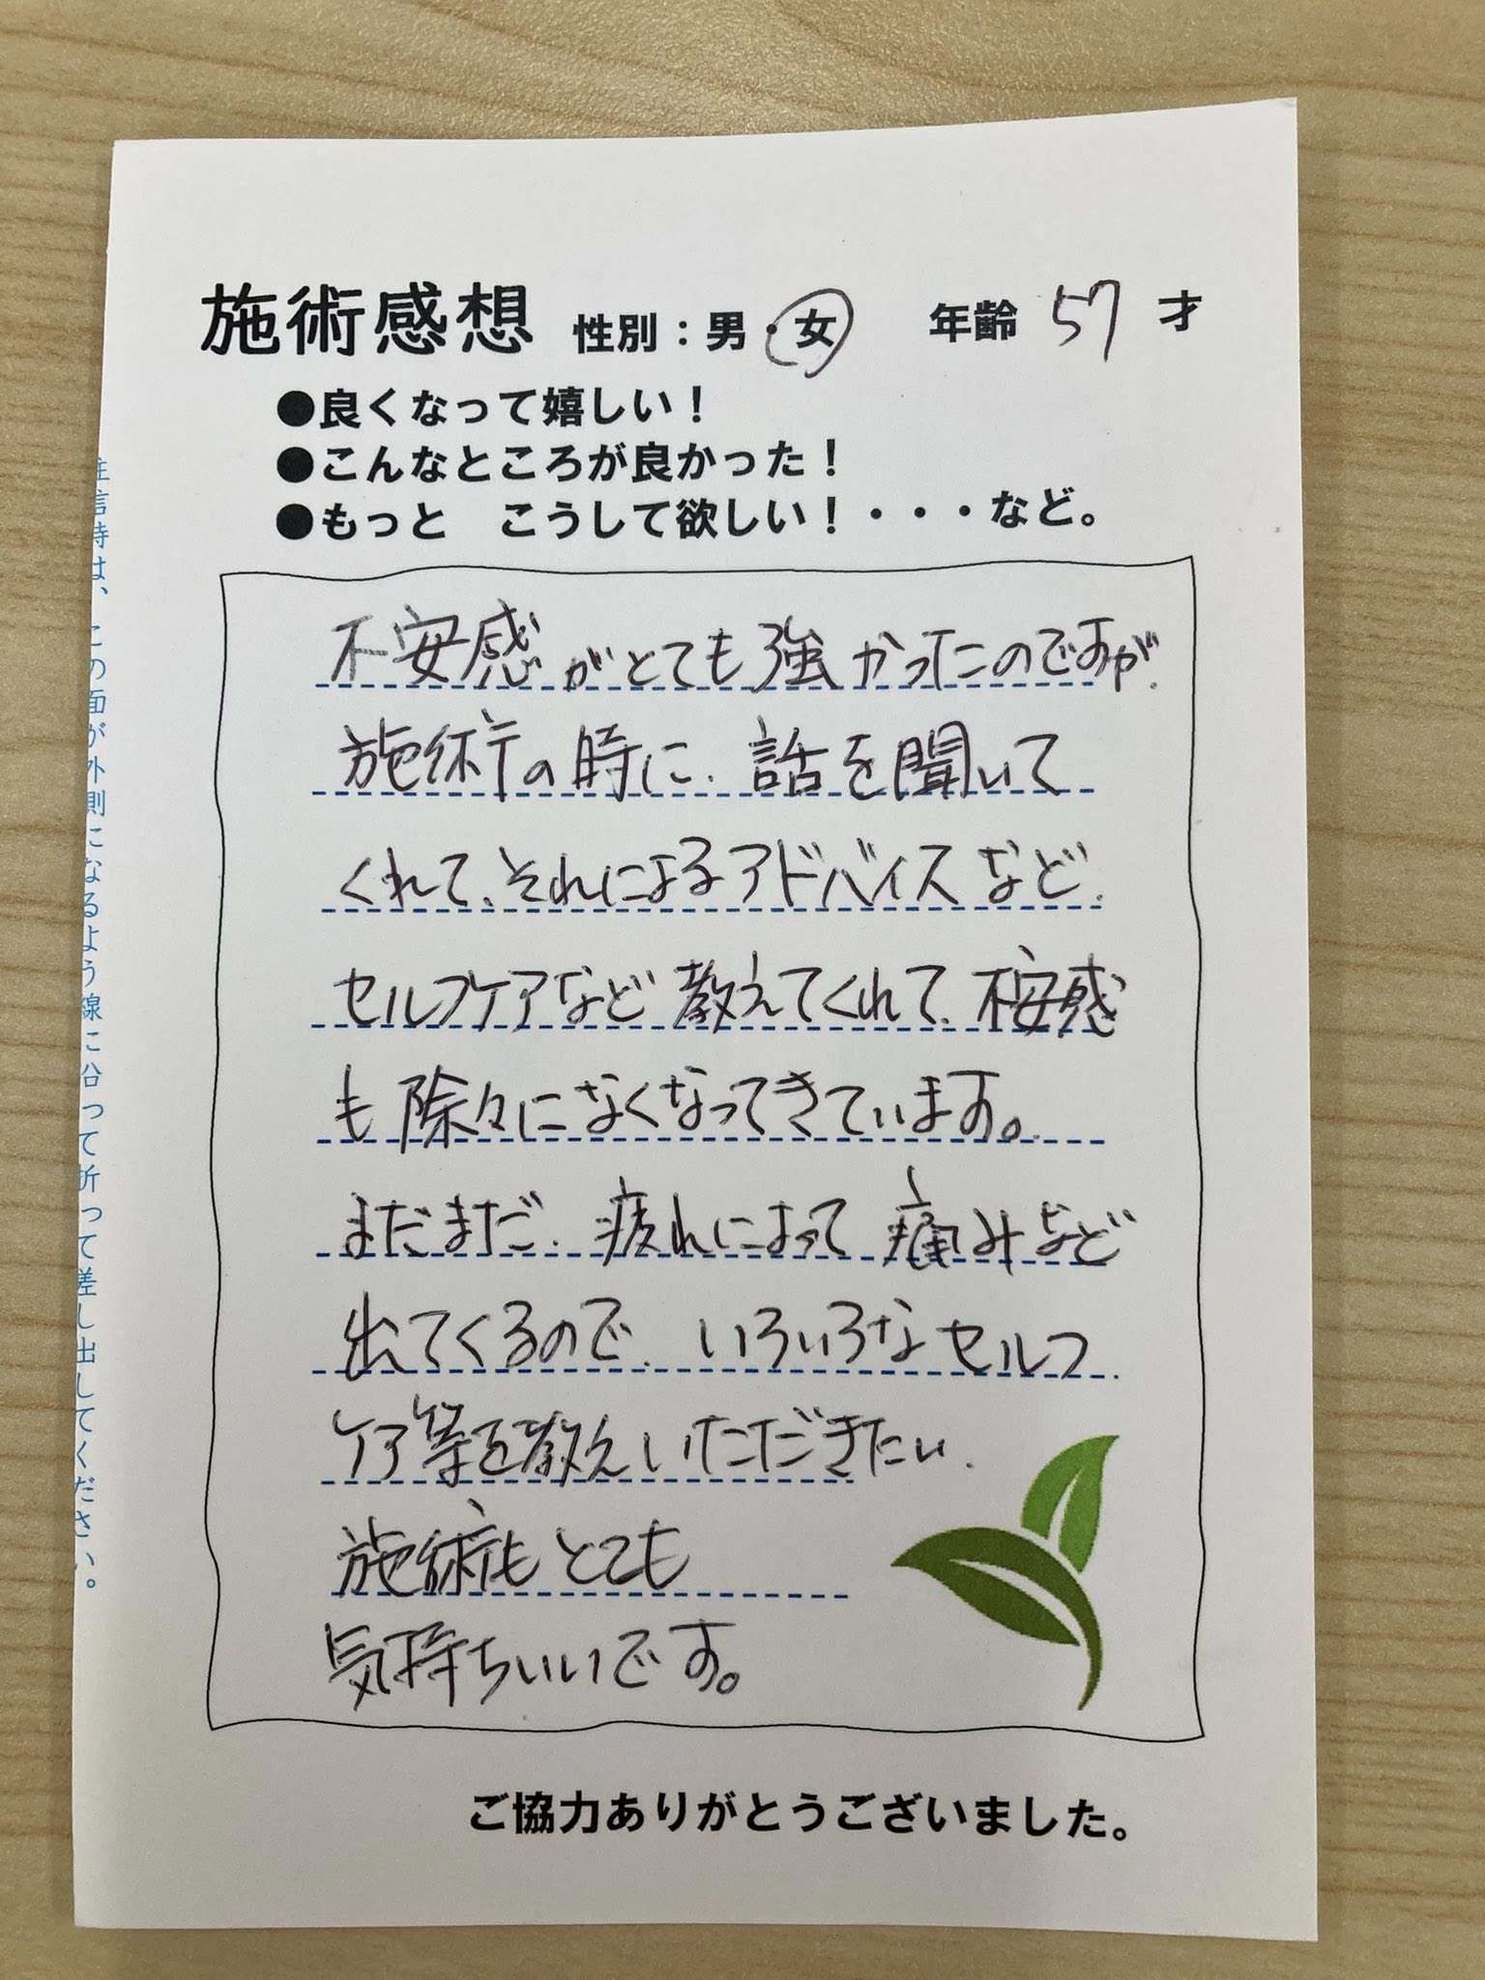 施術感想 性別:男・女 年齢 57 才
●良くなって嬉しい!
●こんなところが良かった!
●もっと こうして欲しい!・・・など。
不安感がとても強かったのですが、
施術の時に、話を聞いて
くれて、それによるアドバイスなど、
セルフケアなど教えてくれて、不安感
も除々になくなってきています。
まだまだ、疲れによって痛みなど
出てくるので、いろいろなセルフ
ケア等を教えいただきたい、
施術もとても
気持ちいいです。
ご協力ありがとうございました。
往信時は、この面が外側になるよう線に沿って折って差し出してください。